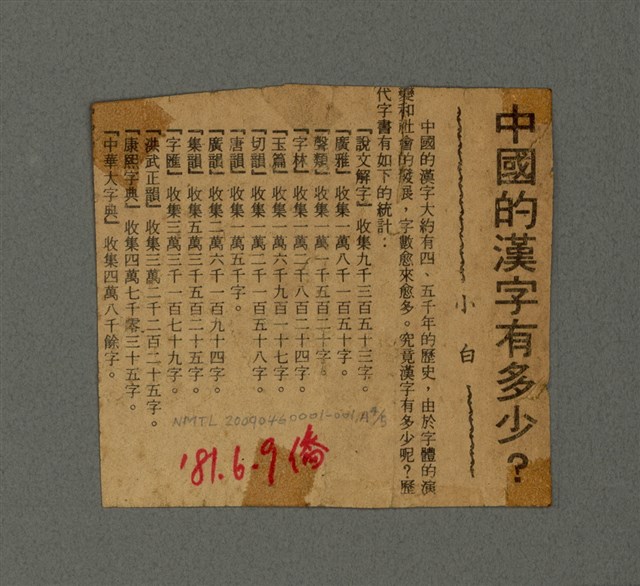 中國的漢字有多少？
小白
中國的漢字大約有四、五千年的歷史，由於字體的演
變和社會的發展，字數愈來愈多。究竟漢字有多少呢？歷
代字書有如下的統計：
『說文解字』收集九千三百五十三字。
『廣雅』收集一萬八千一百五十字。
『聲類』收集一萬一千五百二十字。
『字林』收集一萬二千八百二十四字。
『玉篇』收集一萬六千九百一十七字。
『切韻』收集一萬二千一百五十八字。
『唐韻』收集一萬五千字。
『廣韻』收集二萬六千一百九十四字。
『集韻』收集五萬三千五百二十五字。
『字匯』收集三萬三千一百七十九字。
『洪武正韻』收集三萬二千二百二十五字。
『康熙字典』收集四萬七千零三十五字。
『中華大字典』收集四萬八千餘字。
NMTL 20090460001-001
'81.6.9 僑